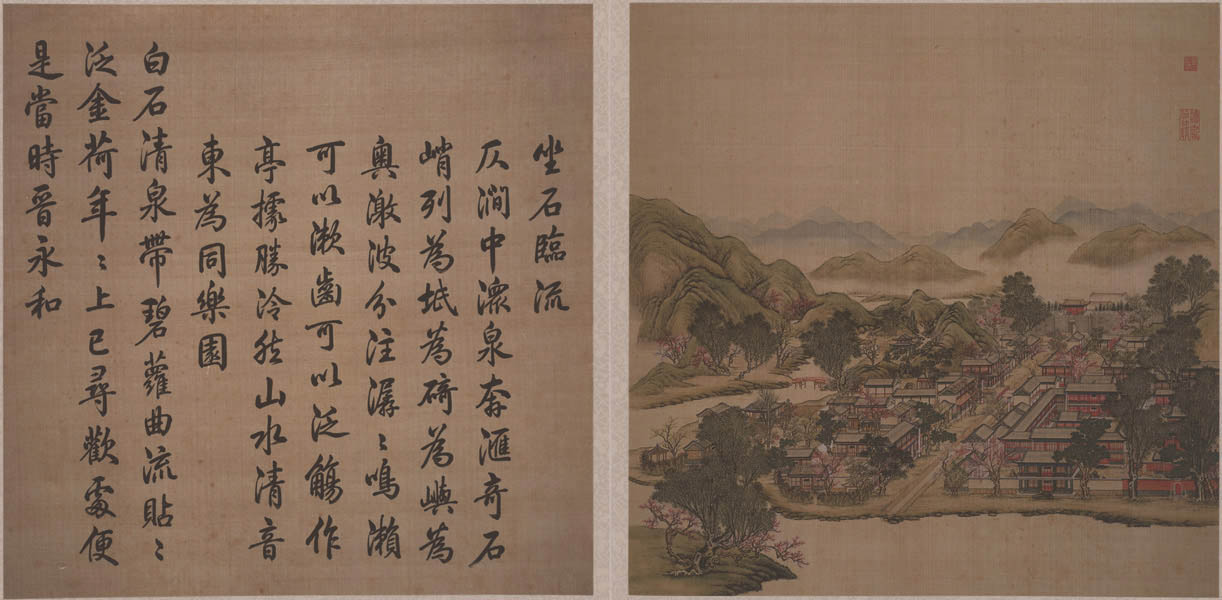 坐石臨流
仄澗中潨泉奔滙奇石
峭列為坻為碕為嶼為
奧激波分注潺〻鳴瀨
可以漱齒可以泛觴作
亭據勝泠然山水清音
東為同樂園
白石清泉帶碧蘿曲流貼〻
泛金荷年〻上巳尋歡處便
是當時晉永和